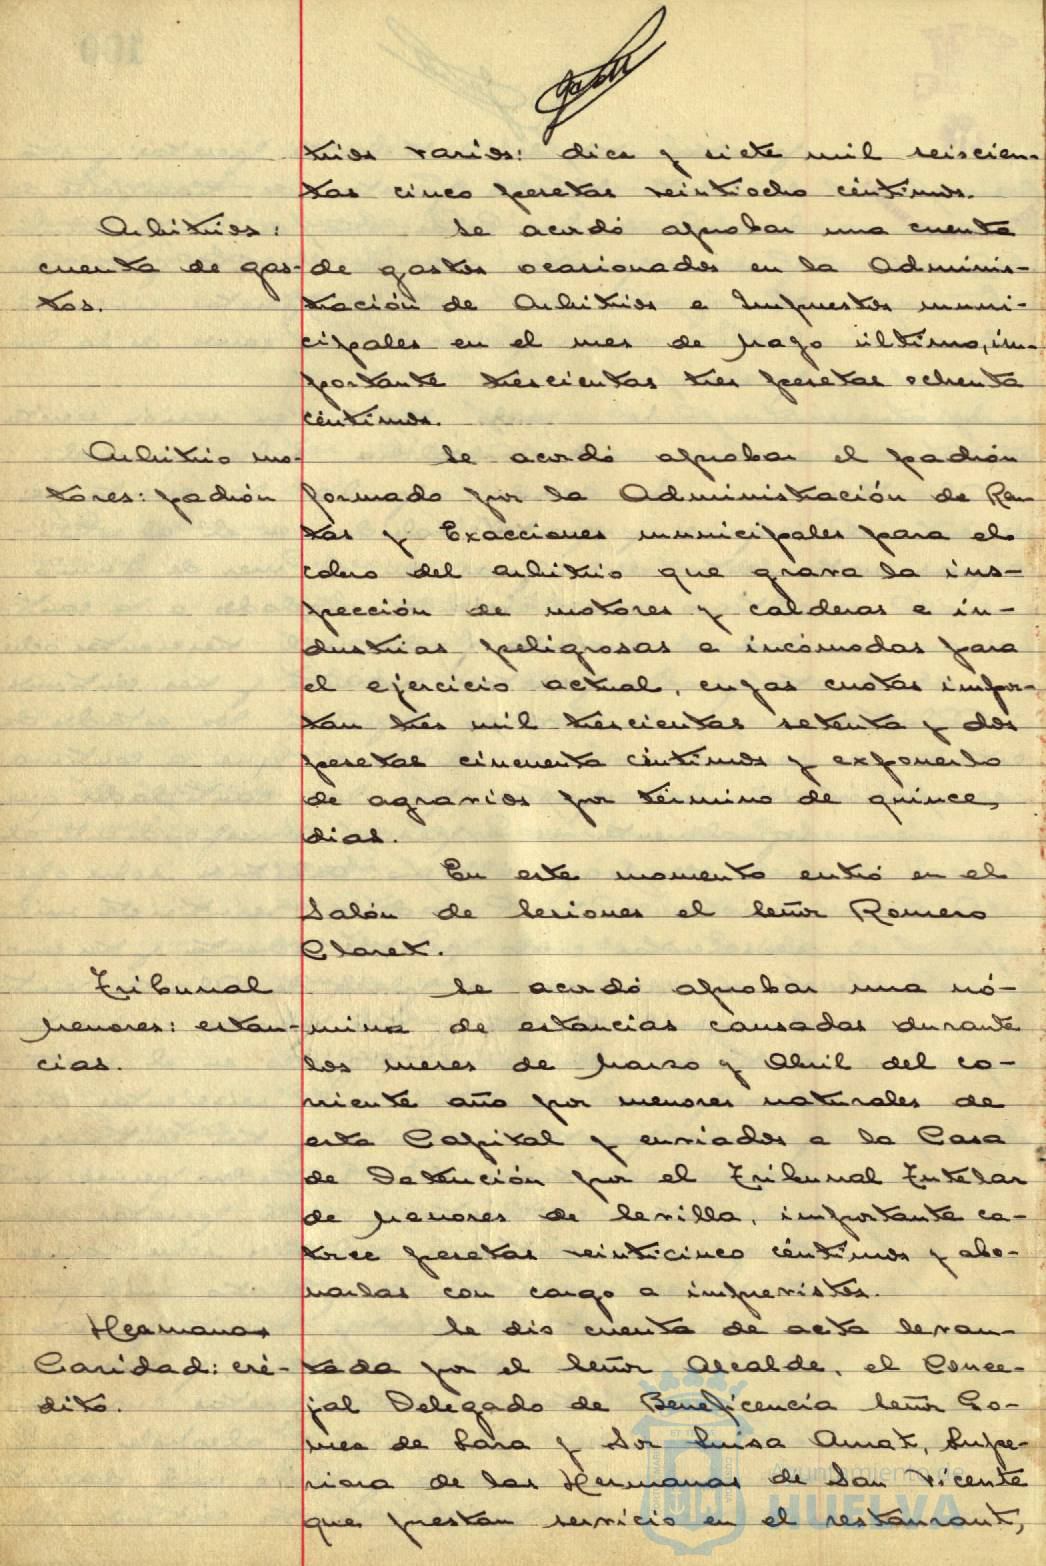 trios varios: diez y siete mil seiscien-
tas cinco pesetas veintiocho céntimos.
Arbitrios:
cuenta de gas-
tos.
Se acordó aprobar una cuenta
de gastos ocasionados en la Adminis-
tración de Arbitrios e Impuestos muni-
cipales en el mes de Mayo último, im-
portante trescientas tres pesetas ochenta
céntimos.
Arbitrio mo-
tores: padrón
Se acordó aprobar el padrón
formado por la Administración de Ren-
tas y Exacciones municipales para el
cobro del arbitrio que grava la ins-
pección de motores y calderas e in-
dustrias peligrosas e incómodas para
el ejercicio actual, cuyas cuotas impor-
tan tres mil trescientas setenta y dos
pesetas cincuenta céntimos y exponerlo
de agravios por término de quince
dias.
En este momento entró en el
Salón de Sesiones el Señor Romero
Claret.
Tribunal
Menores: estan-
cias.
Se acordó aprobar una nó-
mina de estancias causadas durante
los meses de Marzo y Abril del co-
rriente año por menores naturales de
esta Capital y enviados a la Casa
de Detención por el Tribunal Tutelar
de Menores de Sevilla, importante ca-
torce pesetas veinticinco céntimos y abo-
narlas con cargo a imprevistos.
Hermanas
Caridad: cré-
dito.
Se dió cuenta de acta levan-
tada por el Señor Alcalde, el Conce-
jal Delegado de Beneficencia Señor Gó-
mez de Lara y Sor Luisa Amat, Supe-
riora de las Hermanas de San Vicente
que prestan servicio en el restaurant,
Ayuntamiento de
HUELVA